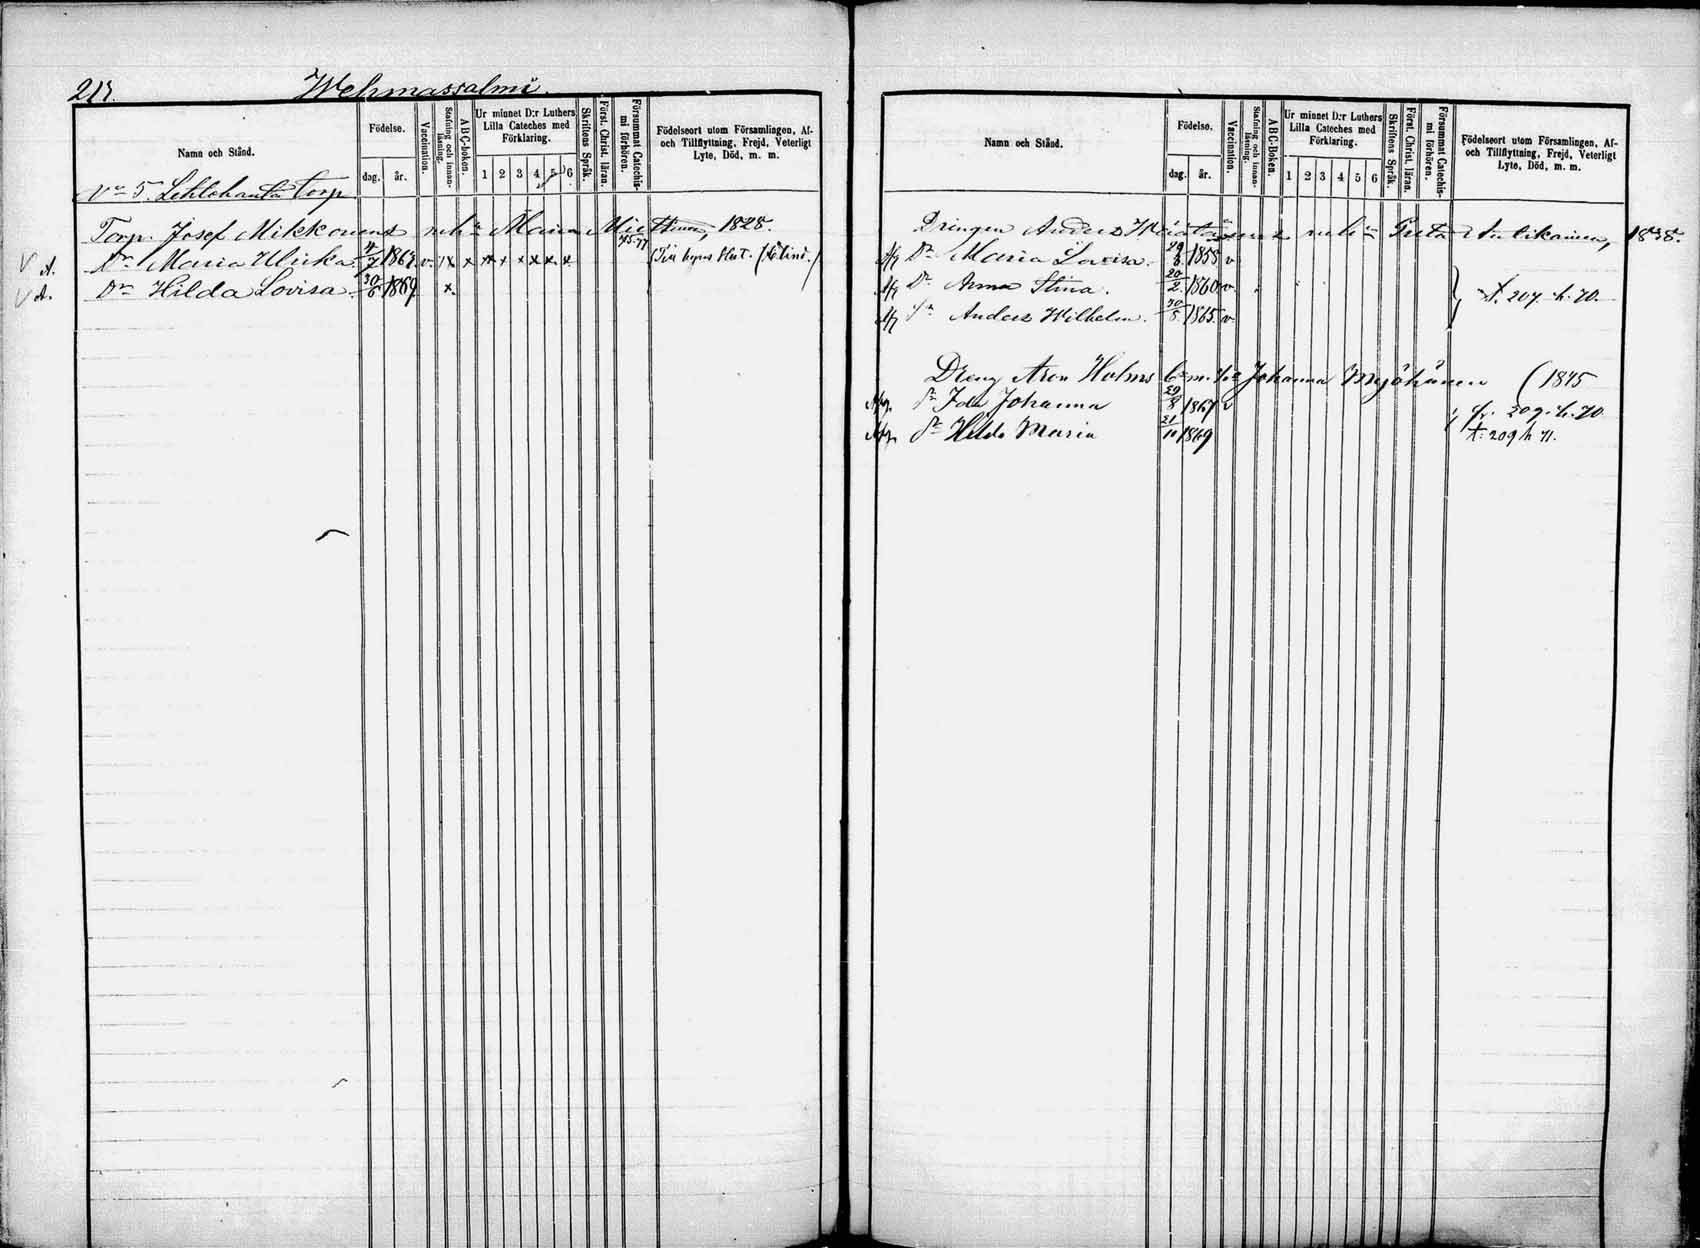 217. Wehmassalmi.
Namn och Stånd.
Födelse.
dag. år.
Vaccination.
Stafning och innanläsning.
ABC-boken.
Ur minnet D:r Luthers Lilla Cateches med Förklaring.
1 2 3 4 5 6
Skriftens Språk.
Först. Christ. läran.
Försummat Catechismi förhören.
Födelseort utom Församlingen, Af- och Tillflyttning, Frejd, Veterligt Lyte, Död, m. m.
No 5. torp.
Torp. Josef Mikkonens Maria 1828.
Dr Maria Ulrika 4/7 1864 v. x x x x x x x x 75.77
Dr Hilda Lovisa. 30/6 1869 x.
Namn och Stånd.
Födelse.
dag. år.
Vaccination.
Stafning och innanläsning.
ABC-boken.
Ur minnet D:r Luthers Lilla Cateches med Förklaring.
1 2 3 4 5 6
Skriftens Språk.
Först. Christ. läran.
Försummat Catechismi förhören.
Födelseort utom Församlingen, Af- och Tillflyttning, Frejd, Veterligt Lyte, Död, m. m.
Drengen Anders Greta
Dr Maria Lovisa. 1858 v
Dr Anna Stina. 20/2 1860 v. 207. h. 70.
Sn Anders Wilhelm. 30/8 1865 v
Dreng Aron Holms Johanna (1845
Dr Ida Johanna 29/8 1867 v 209. h. 70.
Dr Hilda Maria 21/11 1869 209 h 71.